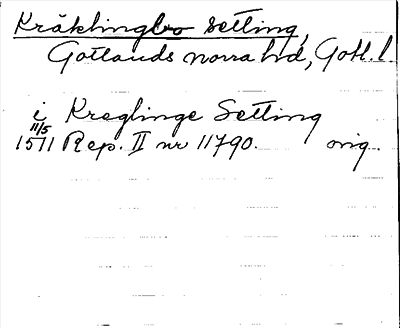 Kräklingbo setting,
Gotlands norra hd, Gotl. l.
i Kreglinge Setting
11/5
1511 Rep. II nr 11790. orig.